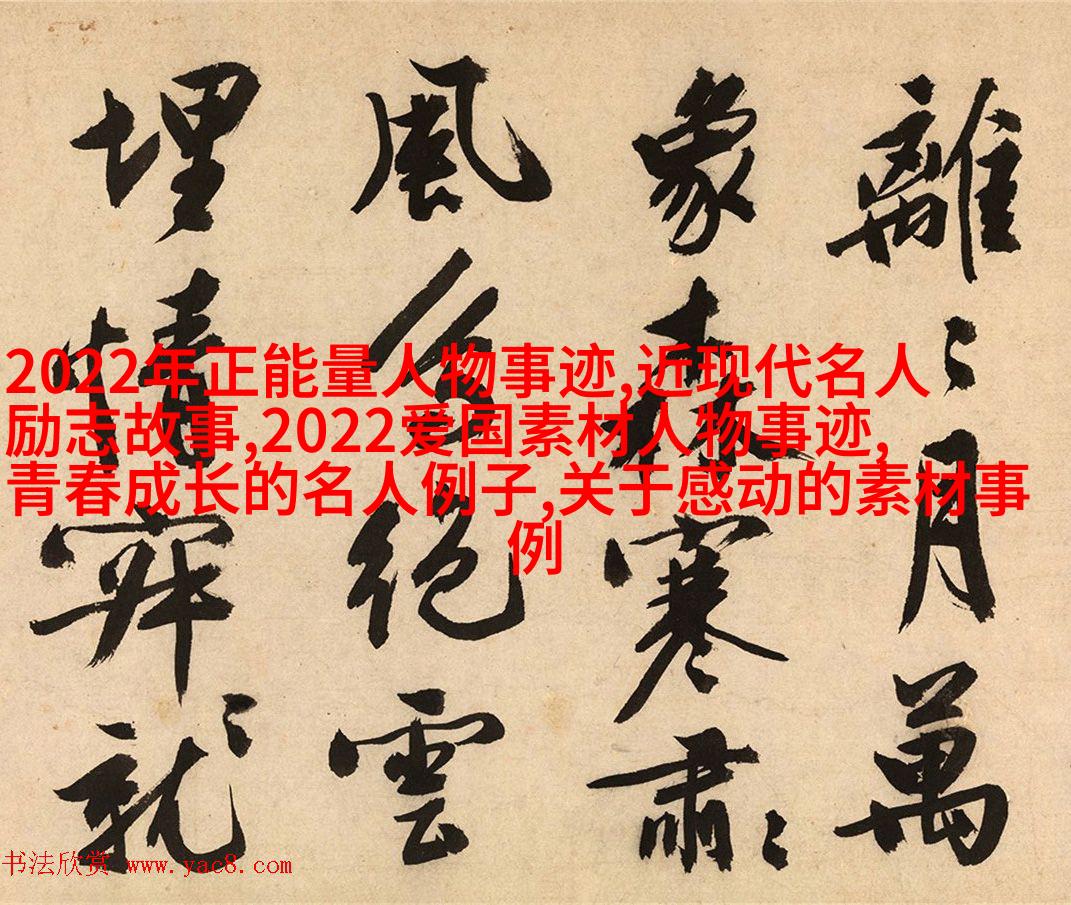 離〻月萬
象森寒肅〻
風絕雲
埋情就〻
2022年正能量人物事迹,近现代名人
励志故事,2022爱国素材人物事迹,
青春成长的名人例子,关于感动的素材事
例
书法欣赏 www.yac8.com